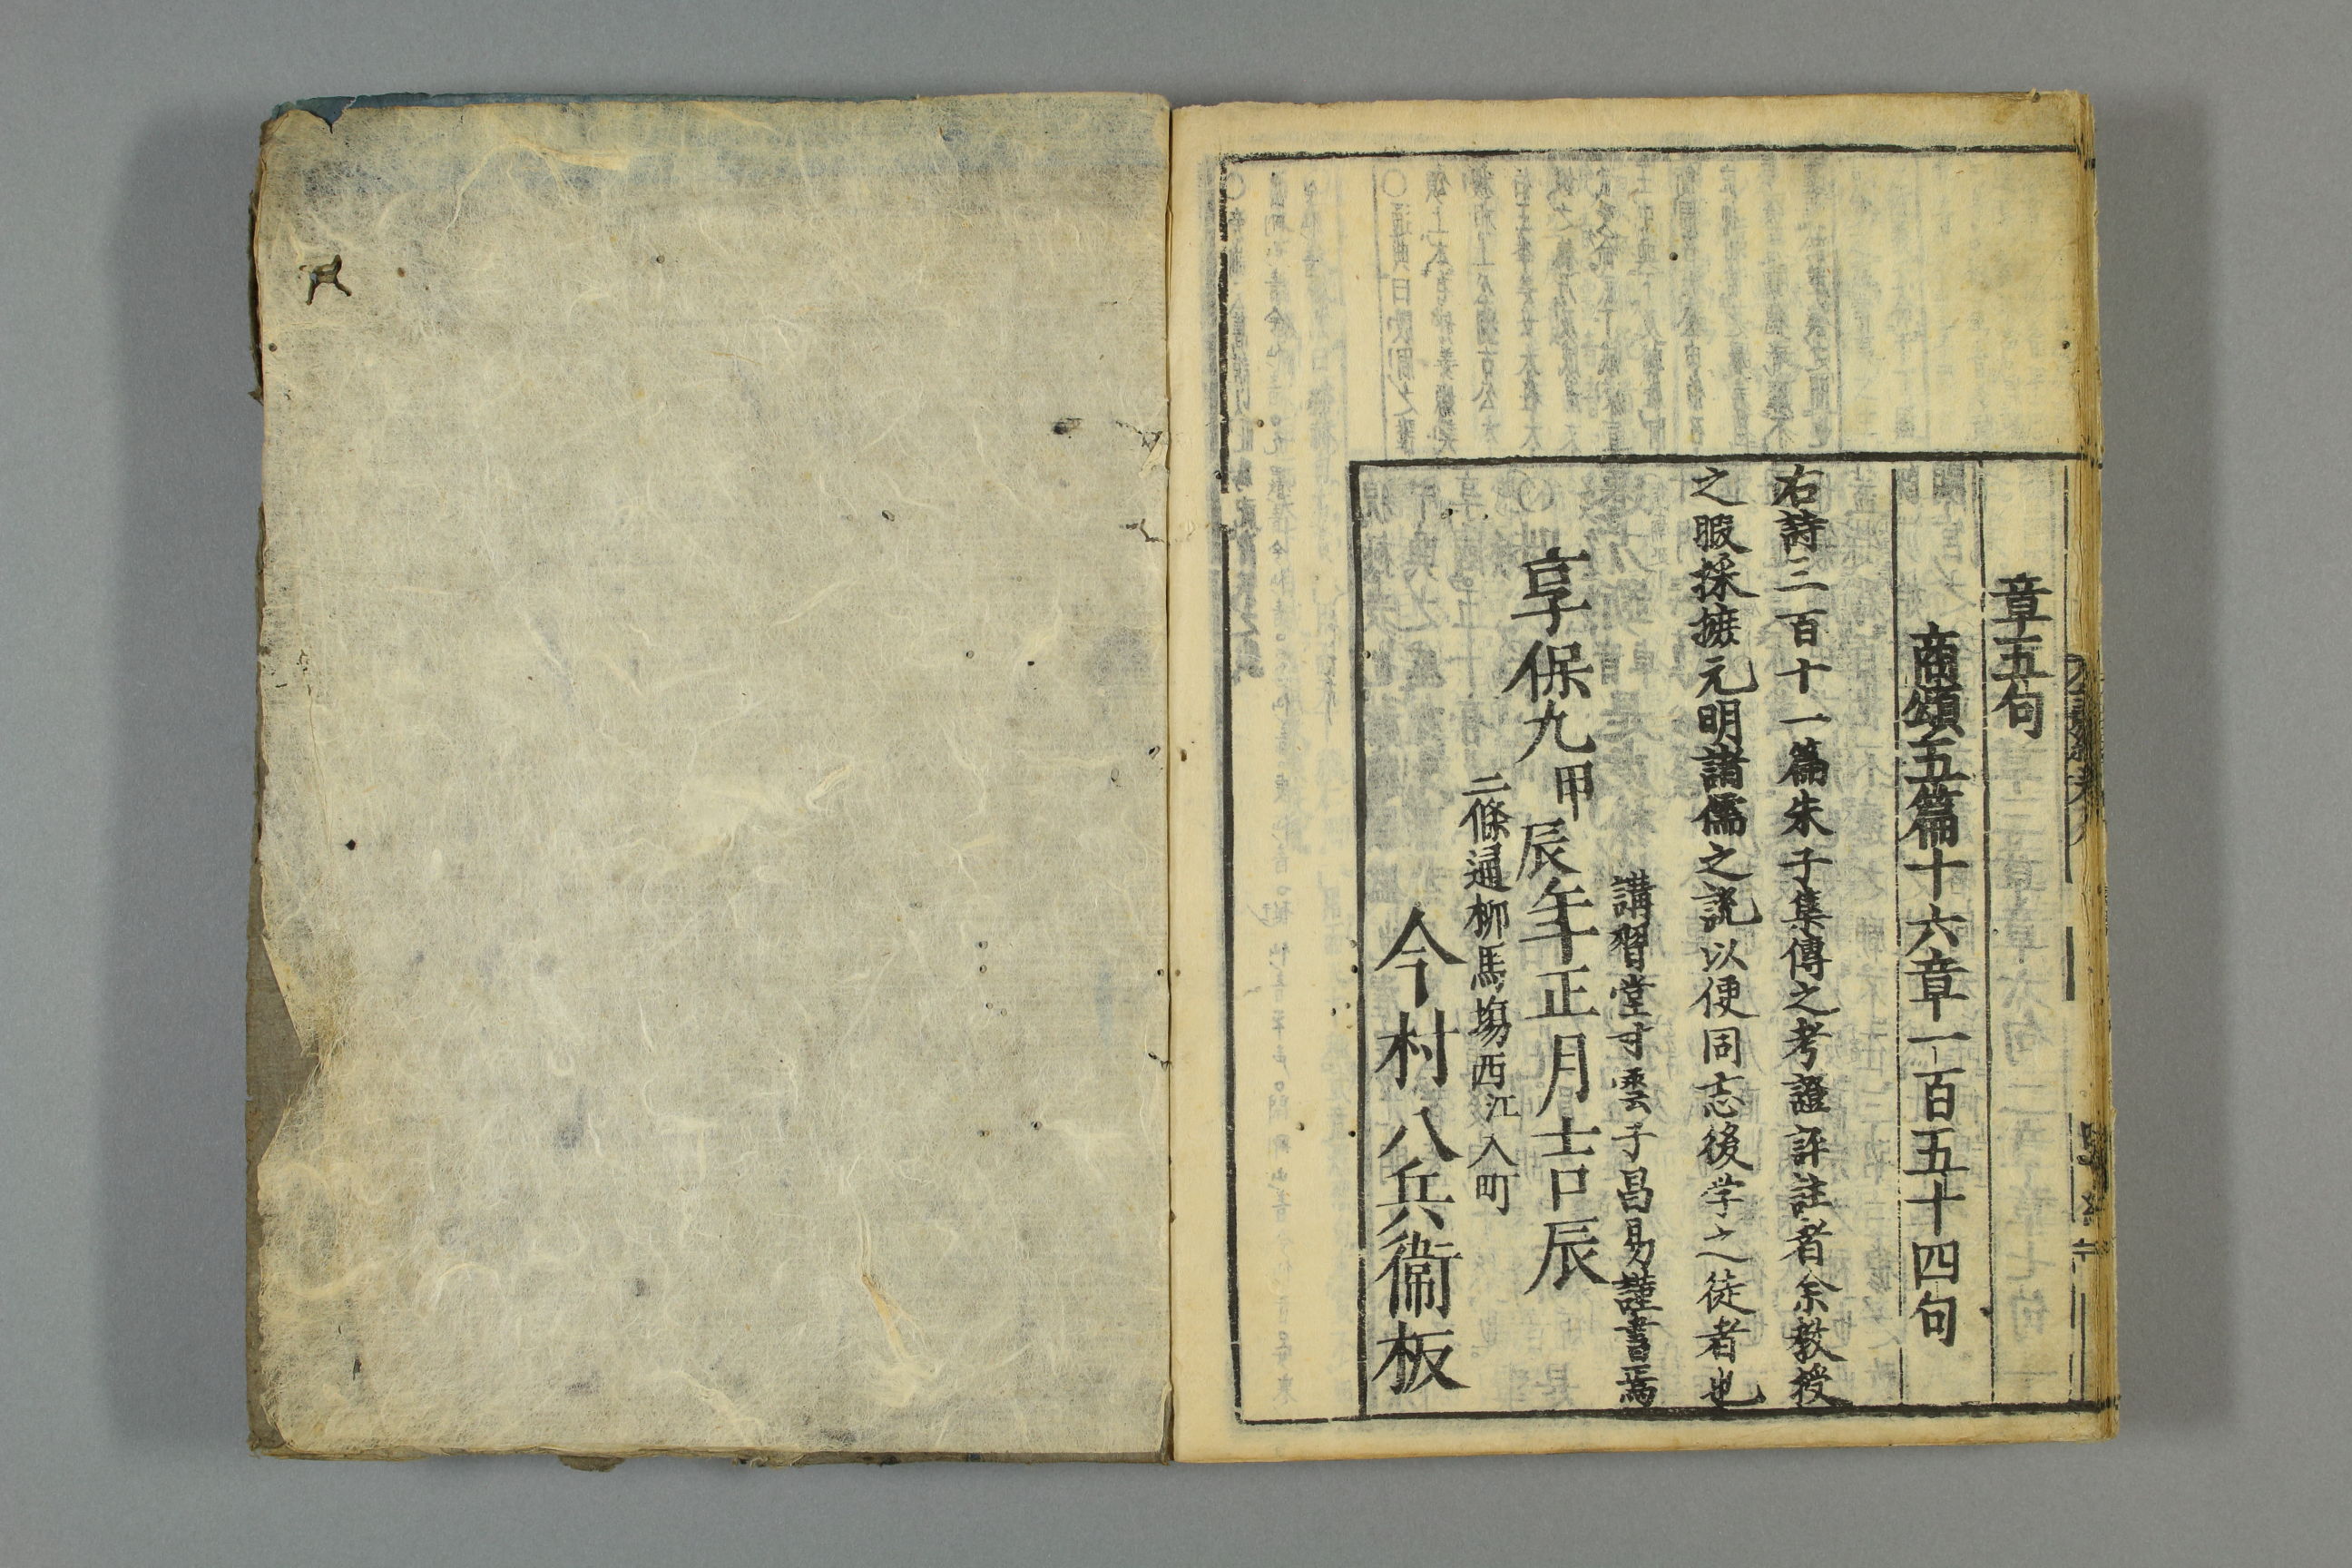 章五句
商頌五篇十六章一百五十四句
右詩三百十一篇朱子集傳之考證評註者余教授
之暇採摭元明諸儒之説以便同志後学之徒者也
講習堂寸雲子昌易謹書焉
享保九甲辰年正月吉辰
二條通柳馬塲西江入町
今村八兵衞板